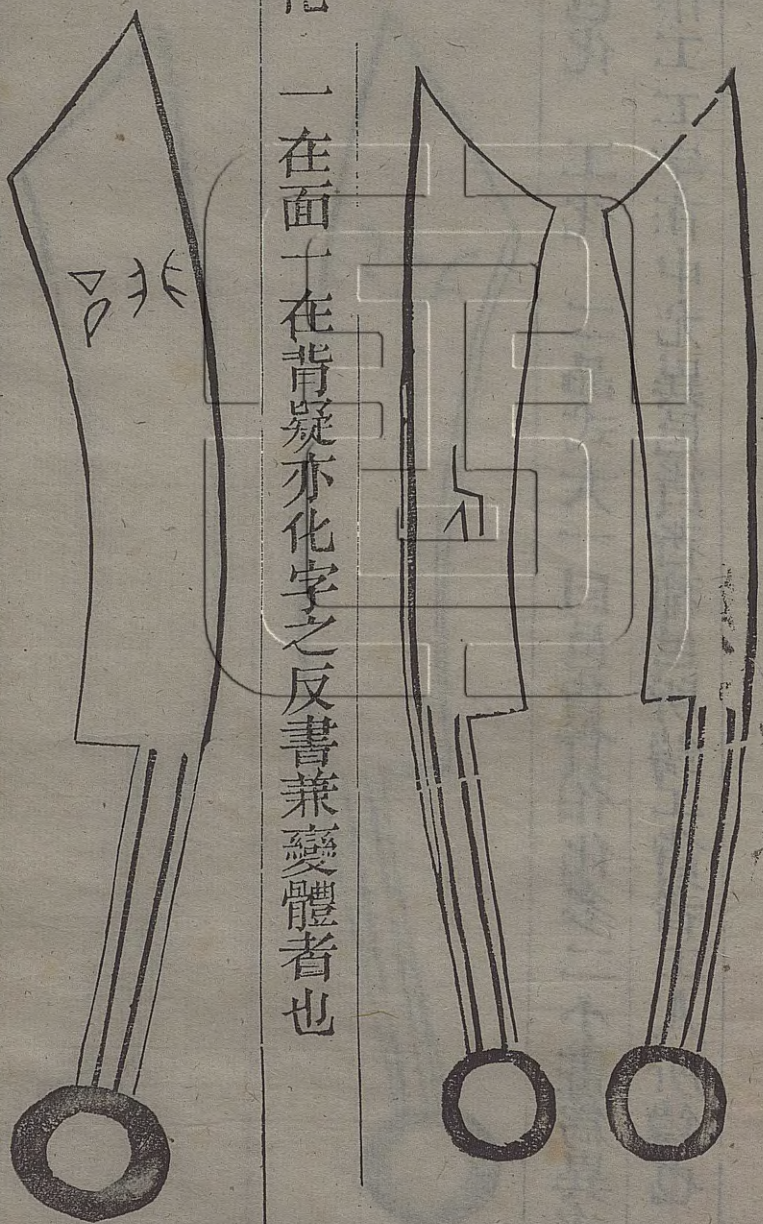 化
一在面一在背疑亦化字之反書兼變體者也